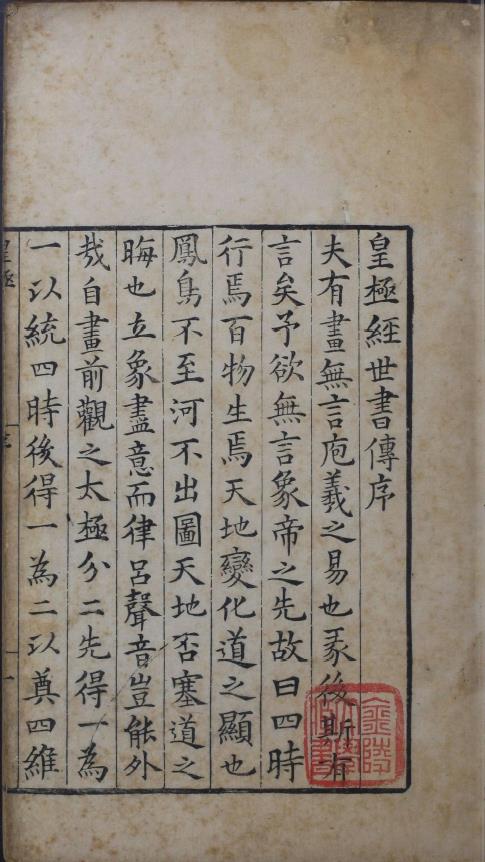 皇極經世書傳序
夫有畫無言庖羲之易也彖後斯有
言矣予欲無言象帝之先故曰四時
行焉百物生焉天地變化道之顯也
鳳鳥不至河不出圖天地否塞道之
晦也立象盡意而律呂聲音豈能外
哉自畫前觀之太極分二先得一為
一以統四時後得一為二以奠四維
皇極